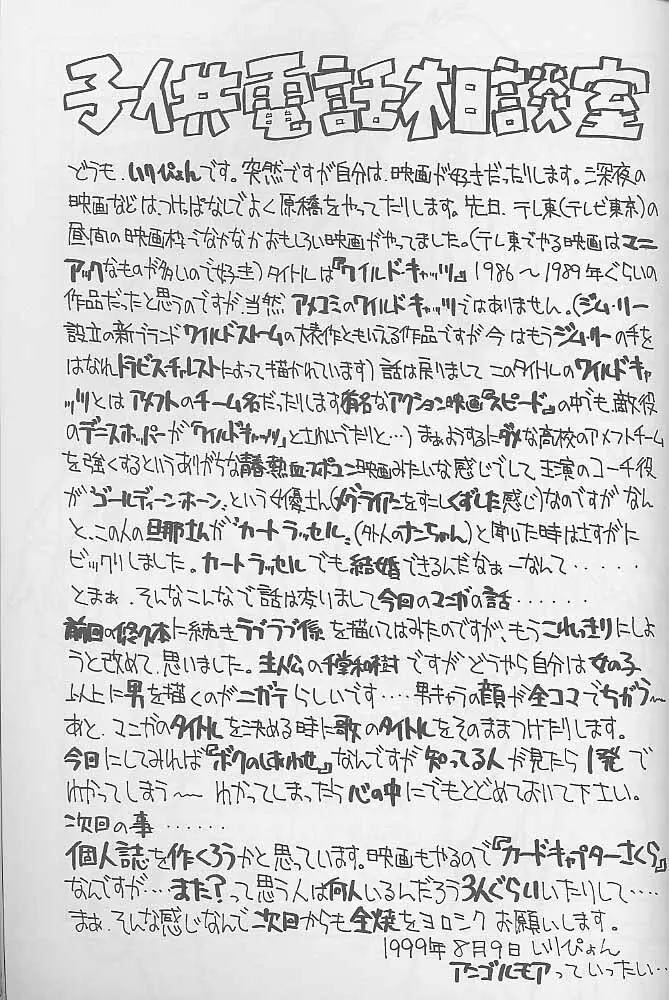 子供電話相談室
どうも、いりぴょんです。突然ですが自分は、映画が好きだったりします。深夜の
映画などは、つけっぱなしでよく原稿をやってたりします。先日、テレ東(テレビ東京)の
昼間の映画枠でなかなかおもしろい映画がやってました。(テレ東でやる映画はマニ
アックなものが多いので好き)タイトルは『ワイルド・キャッツ』1986〜1989年ぐらいの
作品だったと思うのですが、当然アメコミのワイルドキャッツではありません。(ジム・リー
設立の新ブランドワイルドストームの代表作ともいえる作品ですが今はもうジム・リーの手を
はなれトラビス・チャレストによって描かれています)話は戻りましてこのタイトルのワイルドキャ
ッツとはアメフトのチーム名だったりします有名なアクション映画『スピード』の中でも、敵役
のデニスホッパーが『ワイルドキャッツ』と
まぁようするにダメな高校のアメフトチーム
を強くするというありがちな青春・熱血・スポコン映画みたいな感じでして主演のコーチ役
が"ゴールディーン・ホーン"という女優さん(メグ・ライアンをすこしくずした感じ)なのですがなん
と、この人の旦那さんが"カートラッセル"(外人のナンちゃん)と聞いた時はさすがに
ビックリしました。カートラッセルでも結婚できるんだなぁーなんて‥‥‥
とまぁ、そんなこんなで話は変りまして今回のマンガの話‥‥‥‥
前回の悠久本に続きラブラブ系を描いてはみたのですが、もうこれっきりにしよ
うと改めて、思いました。主人公の千堂和樹ですがどうやら自分は女の子
以上に男を描くのがニガテらしいです‥‥男キャラの顔が全コマでちがう〜
あと、マンガのタイトルを決める時に歌のタイトルをそのままつけたりします。
今回にしてみれば『ボクのしあわせ』なんですが知ってる人が見たら1発で
わかってしまう〜〜わかってしまったら心の中にでもとどめておいて下さい。
次回の事‥‥‥
個人誌を作くろうかと思っています。映画もやるので『カードキャプターさくら』
なんですが‥‥また?って思う人は何人いるんだろう3人ぐらいいたりして‥‥‥
まぁ、そんな感じなんで次回からも全焼をヨロシクお願いします。
1999年8月9日 いりぴょん
アンゴルモアっていったい‥‥